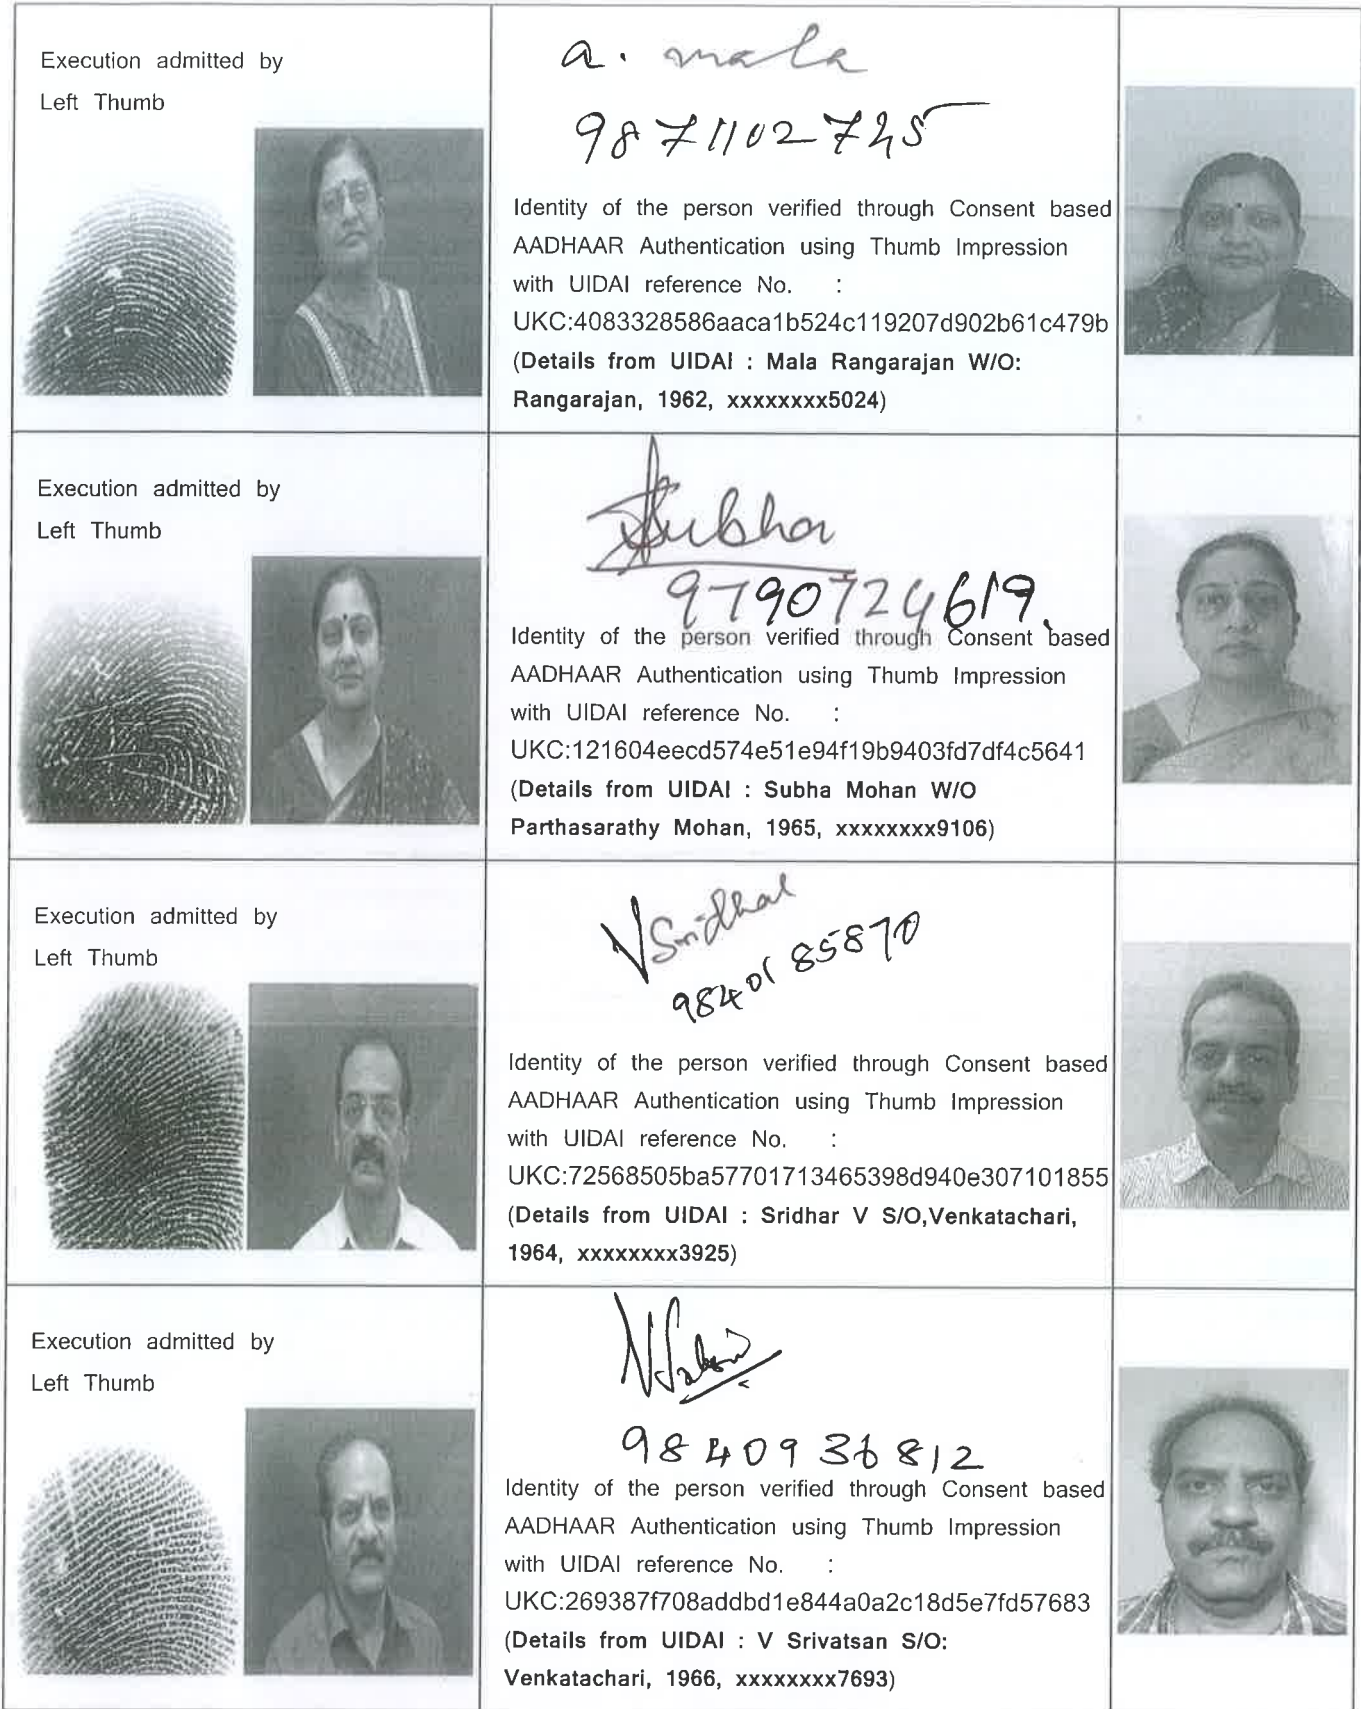 Execution admitted by
Left Thumb
a. mala
9871102725
Identity of the person verified through Consent based
AADHAAR Authentication using Thumb Impression
with UIDAI reference No. :
UKC:4083328586aaca1b524c119207d902b61c479b
(Details from UIDAI : Mala Rangarajan W/O:
Rangarajan, 1962, xxxxxxxx5024)
Execution admitted by
Left Thumb
Subha
9790724619.
Identity of the person verified through Consent based
AADHAAR Authentication using Thumb Impression
with UIDAI reference No. :
UKC:121604eecd574e51e94f19b9403fd7df4c5641
(Details from UIDAI : Subha Mohan W/O
Parthasarathy Mohan, 1965, xxxxxxxx9106)
Execution admitted by
Left Thumb
V Sridhar
98401 85870
Identity of the person verified through Consent based
AADHAAR Authentication using Thumb Impression
with UIDAI reference No. :
UKC:72568505ba57701713465398d940e307101855
(Details from UIDAI : Sridhar V S/O,Venkatachari,
1964, xxxxxxxx3925)
Execution admitted by
Left Thumb
9840936812
Identity of the person verified through Consent based
AADHAAR Authentication using Thumb Impression
with UIDAI reference No. :
UKC:269387f708addbd1e844a0a2c18d5e7fd57683
(Details from UIDAI : V Srivatsan S/O:
Venkatachari, 1966, xxxxxxxx7693)